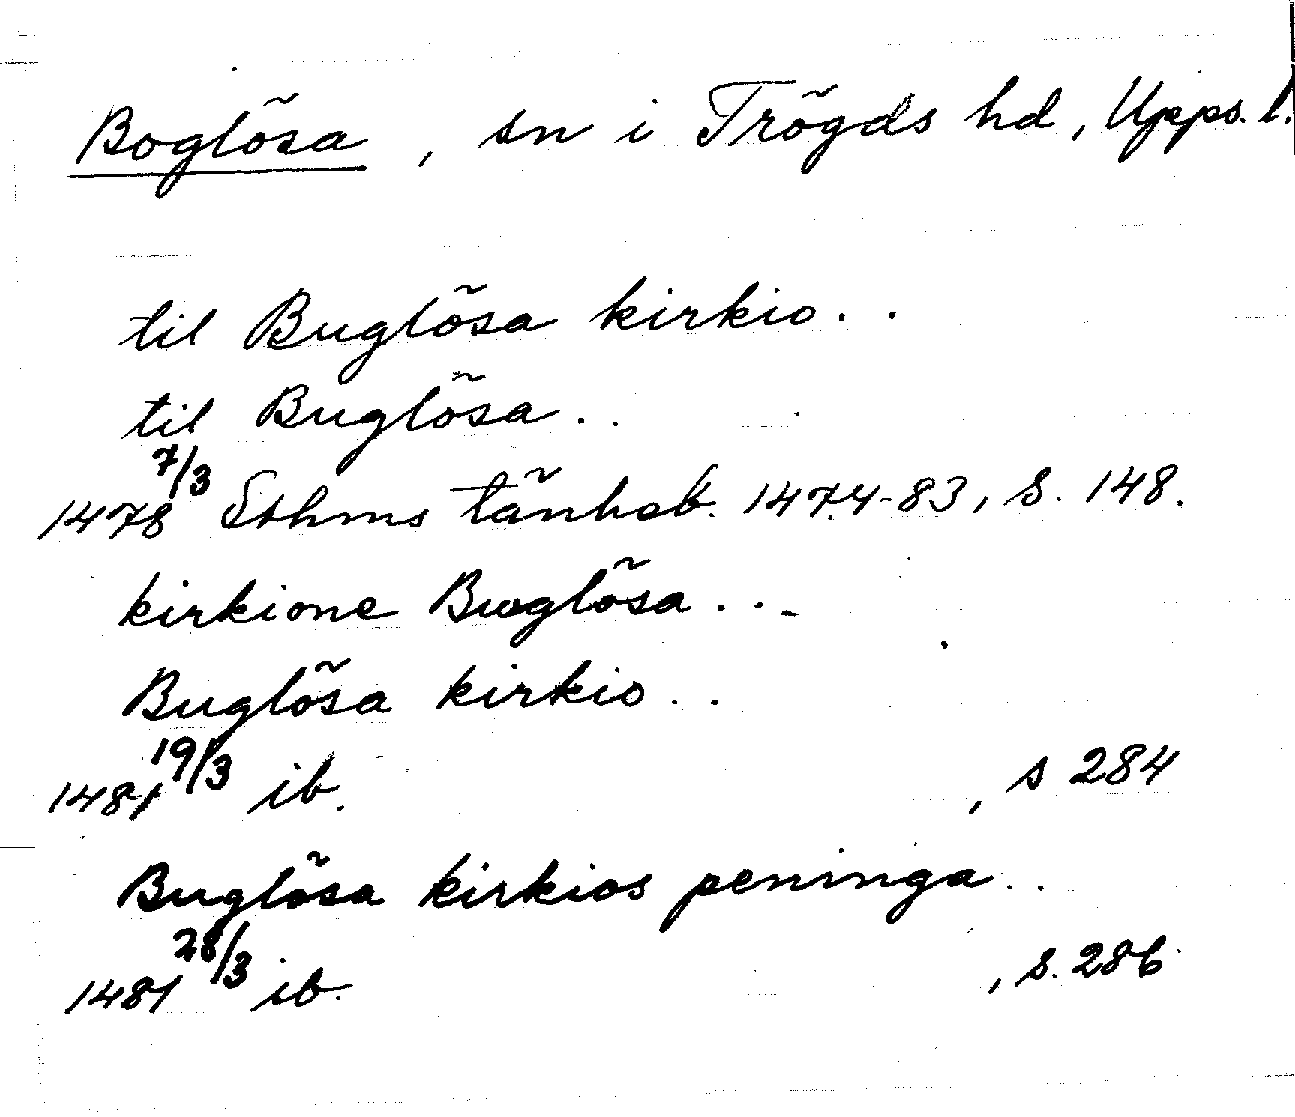 Boglösa, sn i Trögds hd, Upps. l.
til Buglösa kirkio..
til Buglösa..
1478 7/3 Sthms tänkeb. 1474-83, s. 148.
kirkione Bwglösa...
Buglösa kirkio..
1481 19/3 ib. , s 284
Buglösa kirkios peninga..
1481 28/3 ib. , s. 286